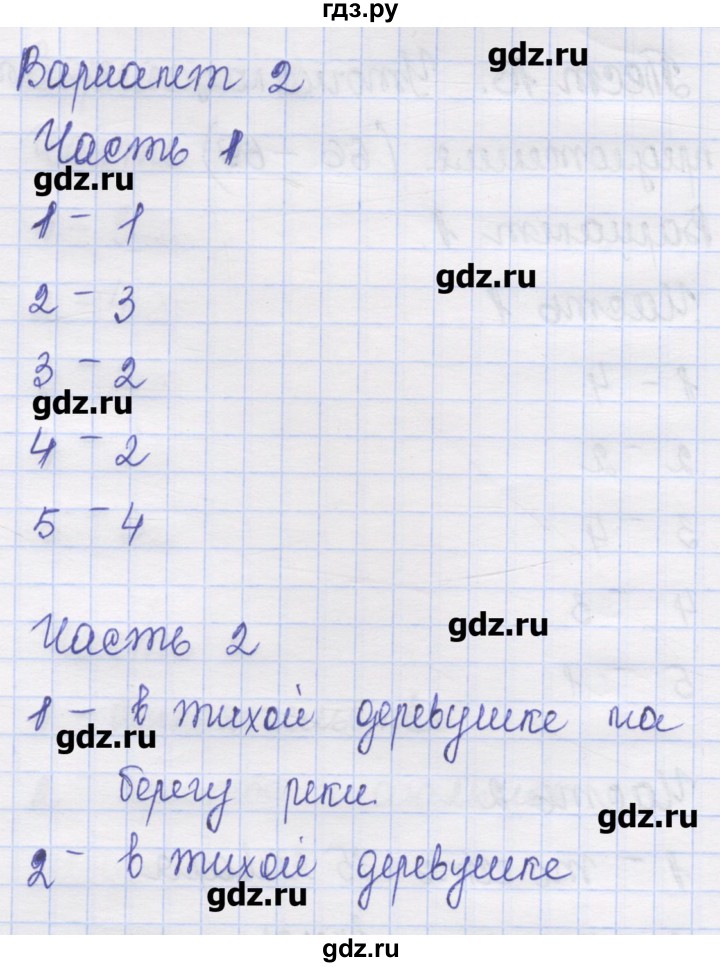 гдз.ру
gdz.ru
Вариант 2
Часть 1
gdz.ru
1 - 1
gdz.ru
2 - 3
3 - 2
gdz.ru
4 - 2
5 - 4
Часть 2
gdz.ru
1 - в тихой деревушке на
gdz.ru
берегу реки.
gdz.ru
2 - в тихой деревушке
gdz.ru
gdz.ru